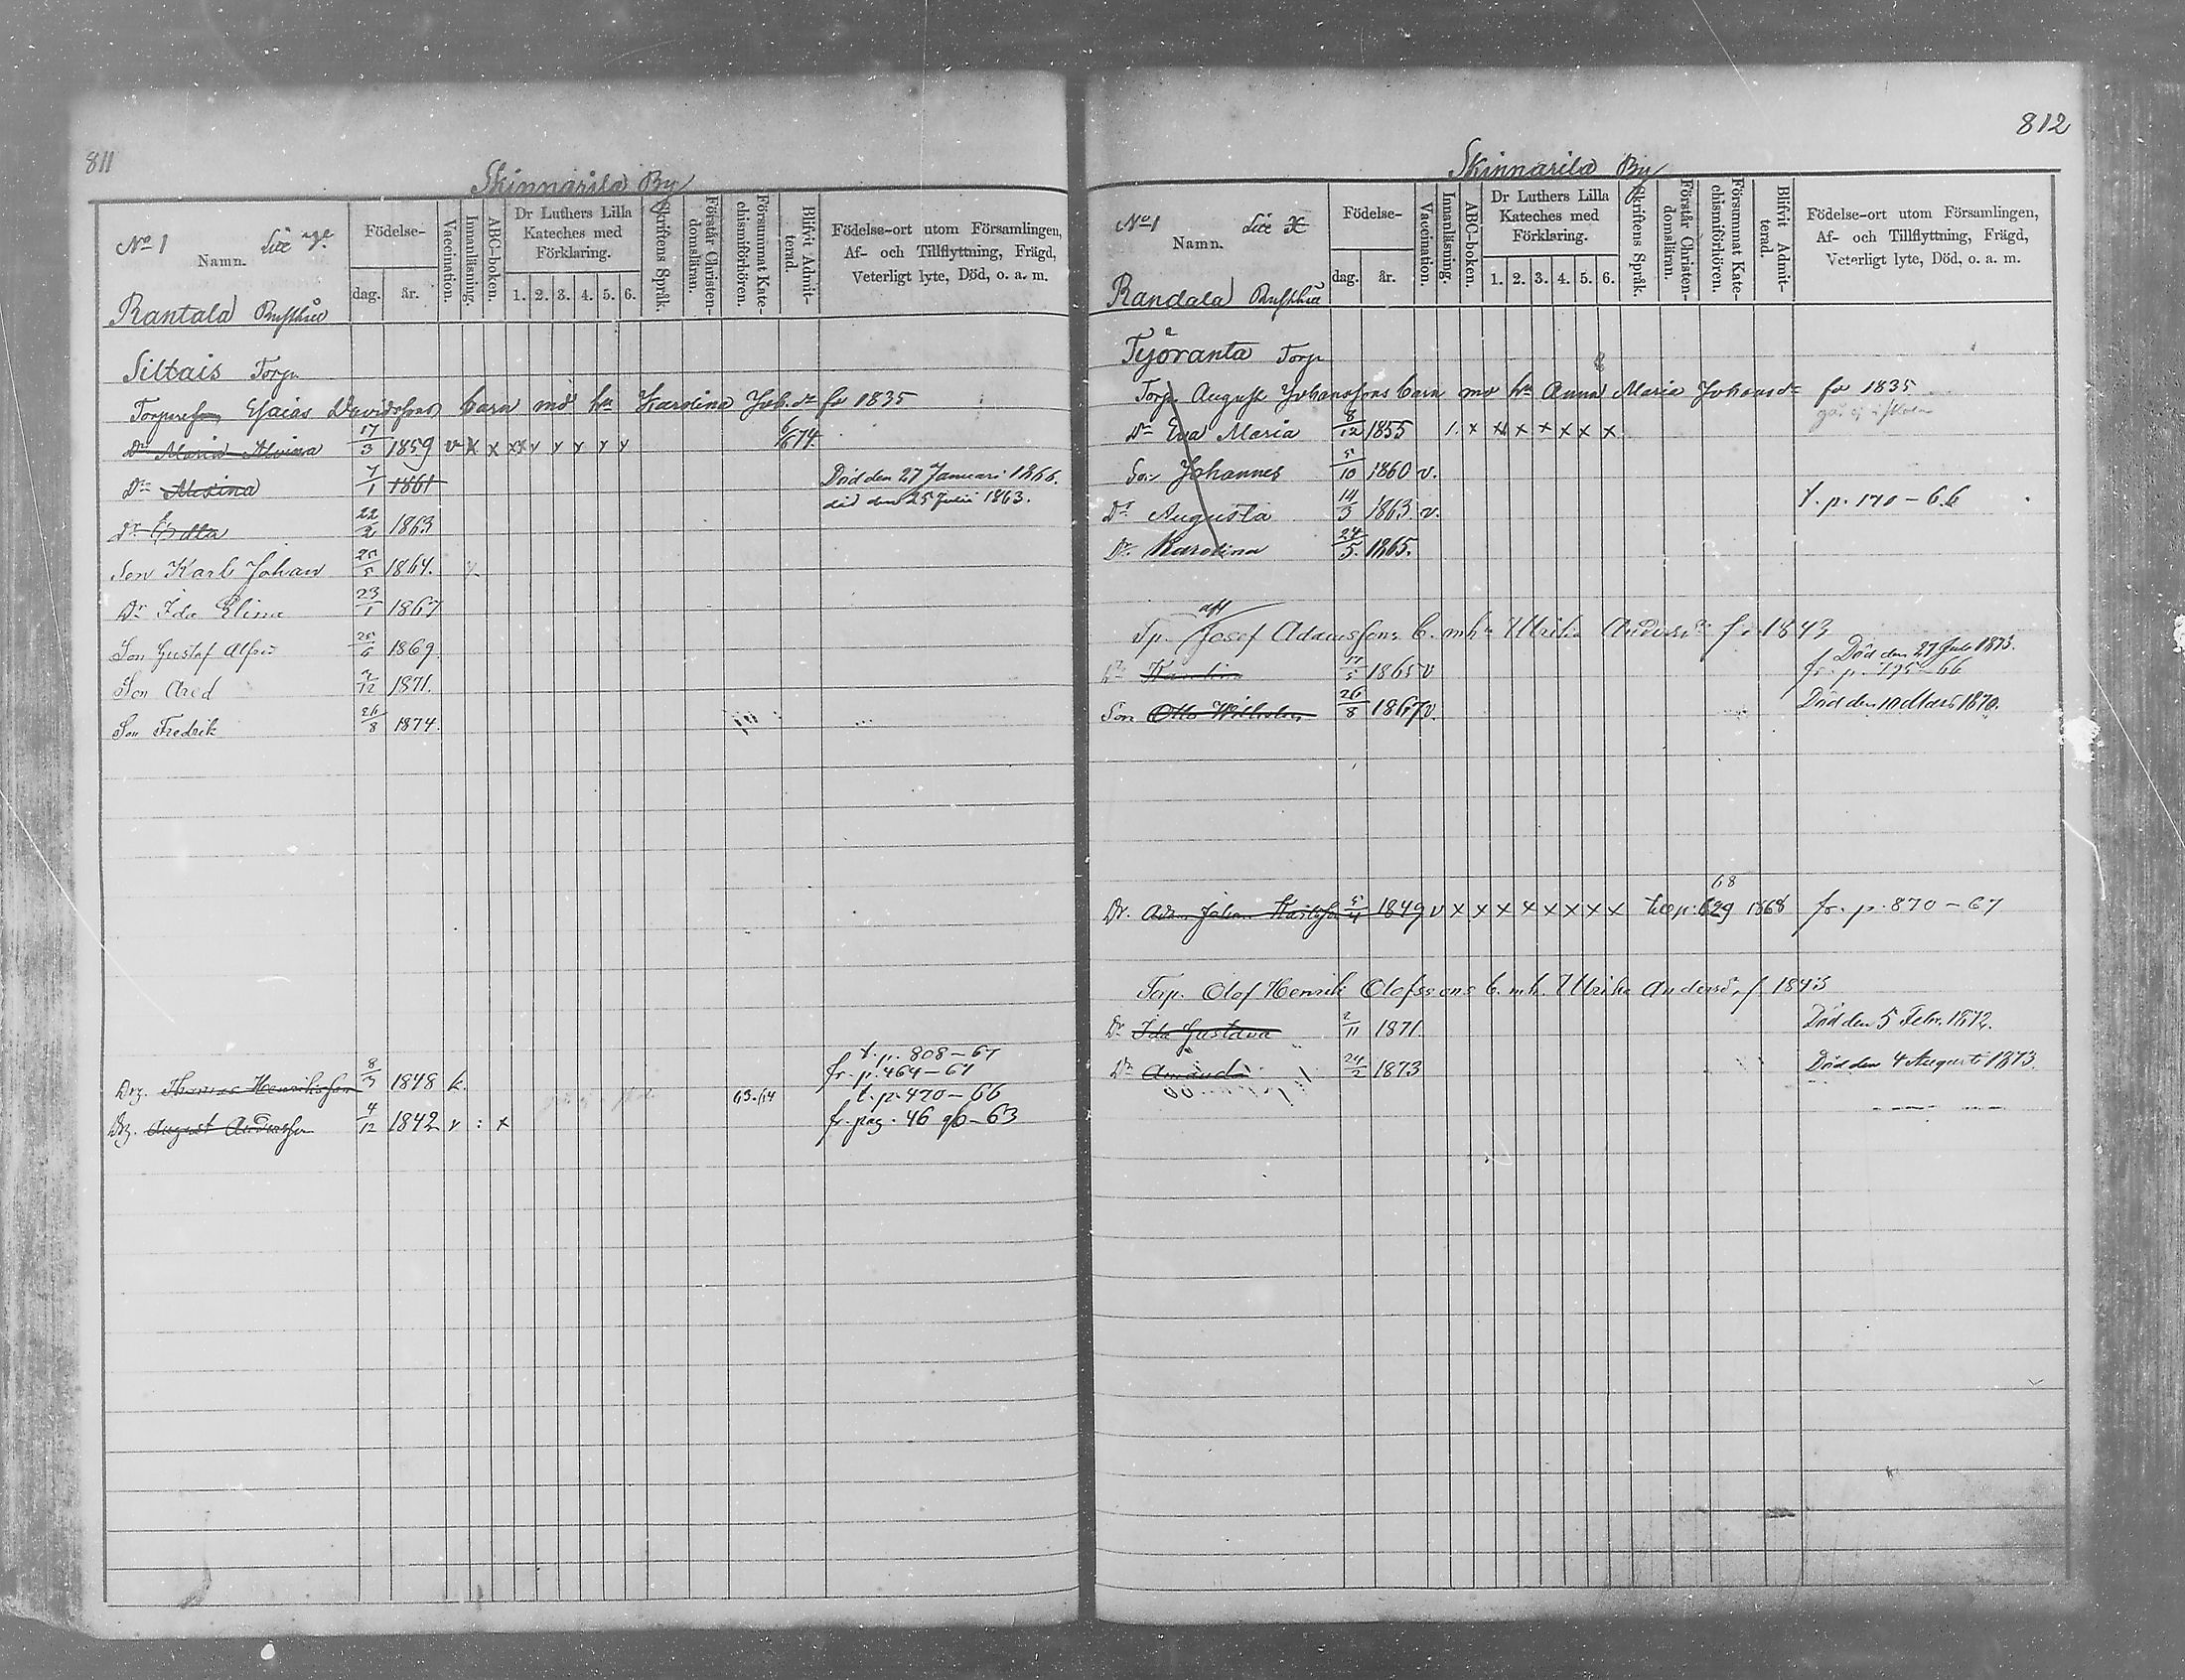 811
Skinnarila By
No 1 Litt
Namn.
Födelse-
dag. år.
Vaccination.
Innanläsning.
ABC-boken.
Dr Luthers Lilla Kateches med Förklaring.
1. 2. 3. 4. 5. 6.
Skriftens Språk.
Förstår Christendomsläran.
Försummat Katechismiförhören.
Blifvit Admitterad.
Födelse-ort utom Församlingen,
Af- och Tillflyttning, Frägd,
Veterligt lyte, Död, o. a. m.
Rantala Rusthåll
Siltais Torp
Esaias Davidssons barn med hu Karolina Joh.dr fö 1835
Dr Maria Alvina 17/3 1859 v x x xx v y y y y 6/6 74
Dr 7/1 1861 Död den 27 Januari 1866.
Dr Edla 22/2 1863 död den 25 Julii 1863.
Son Karl Johan 20/5 1864.
Dr Ida Elina 23/1 1867
Son Gustaf Alfred 20/6 1869.
Son Ared 2/12 1871.
Son Fredrik 26/8 1874.
t. p. 808-67
Drg. Thomas Henriksson 8/3 1848 k. fr. p. 464-64
63.64 t. p. 470-66
Drg. August Andersson 4/12 1842 v : x fr. pag. 46 gb-63
812
Skinnarila By
No 1 Litt
Namn.
Födelse-
dag. år.
Vaccination.
Innanläsning.
ABC-boken.
Dr Luthers Lilla Kateches med Förklaring.
1. 2. 3. 4. 5. 6.
Skriftens Språk.
Förstår Christendomsläran.
Försummat Katechismiförhören.
Blifvit Admitterad.
Födelse-ort utom Församlingen,
Af- och Tillflyttning, Frägd,
Veterligt lyte, Död, o. a. m.
Randala Rusthåll
Työranta Torp
Torp. August Johanssons barn md hu Anna Maria Johansdr fö 1835
Dr Eva Maria 8/12 1855 1. x x x x x x x
Son Johannes 5/10 1860 v.
Dr Augusta 14/3 1863 v. t. p. 170-66
Dr. Karolina 24/5 1865.
aft
Tp. Josef Adamssons b. m hu Ulrika Andersdr fö 1843
Död den 27 1873.
Dr 17/5 1865 v fr. p. 195-66
Son Otto Wilhelm 26/8 1867 v. Död den 10 Mars 1870.
68
Dr. Johan 5/4 1849 v x x x x x x x x till p. 629 1868 fr. p. 870-67
Torp. Olof Henrik Olofssons b. m h. Ulrika Andersdr f 1843
Dr Ida Gustava 2/11 1871. Död den 5 Febr. 1872.
Dr Amanda 24/2 1873 Död den 4 Augusti 1873.